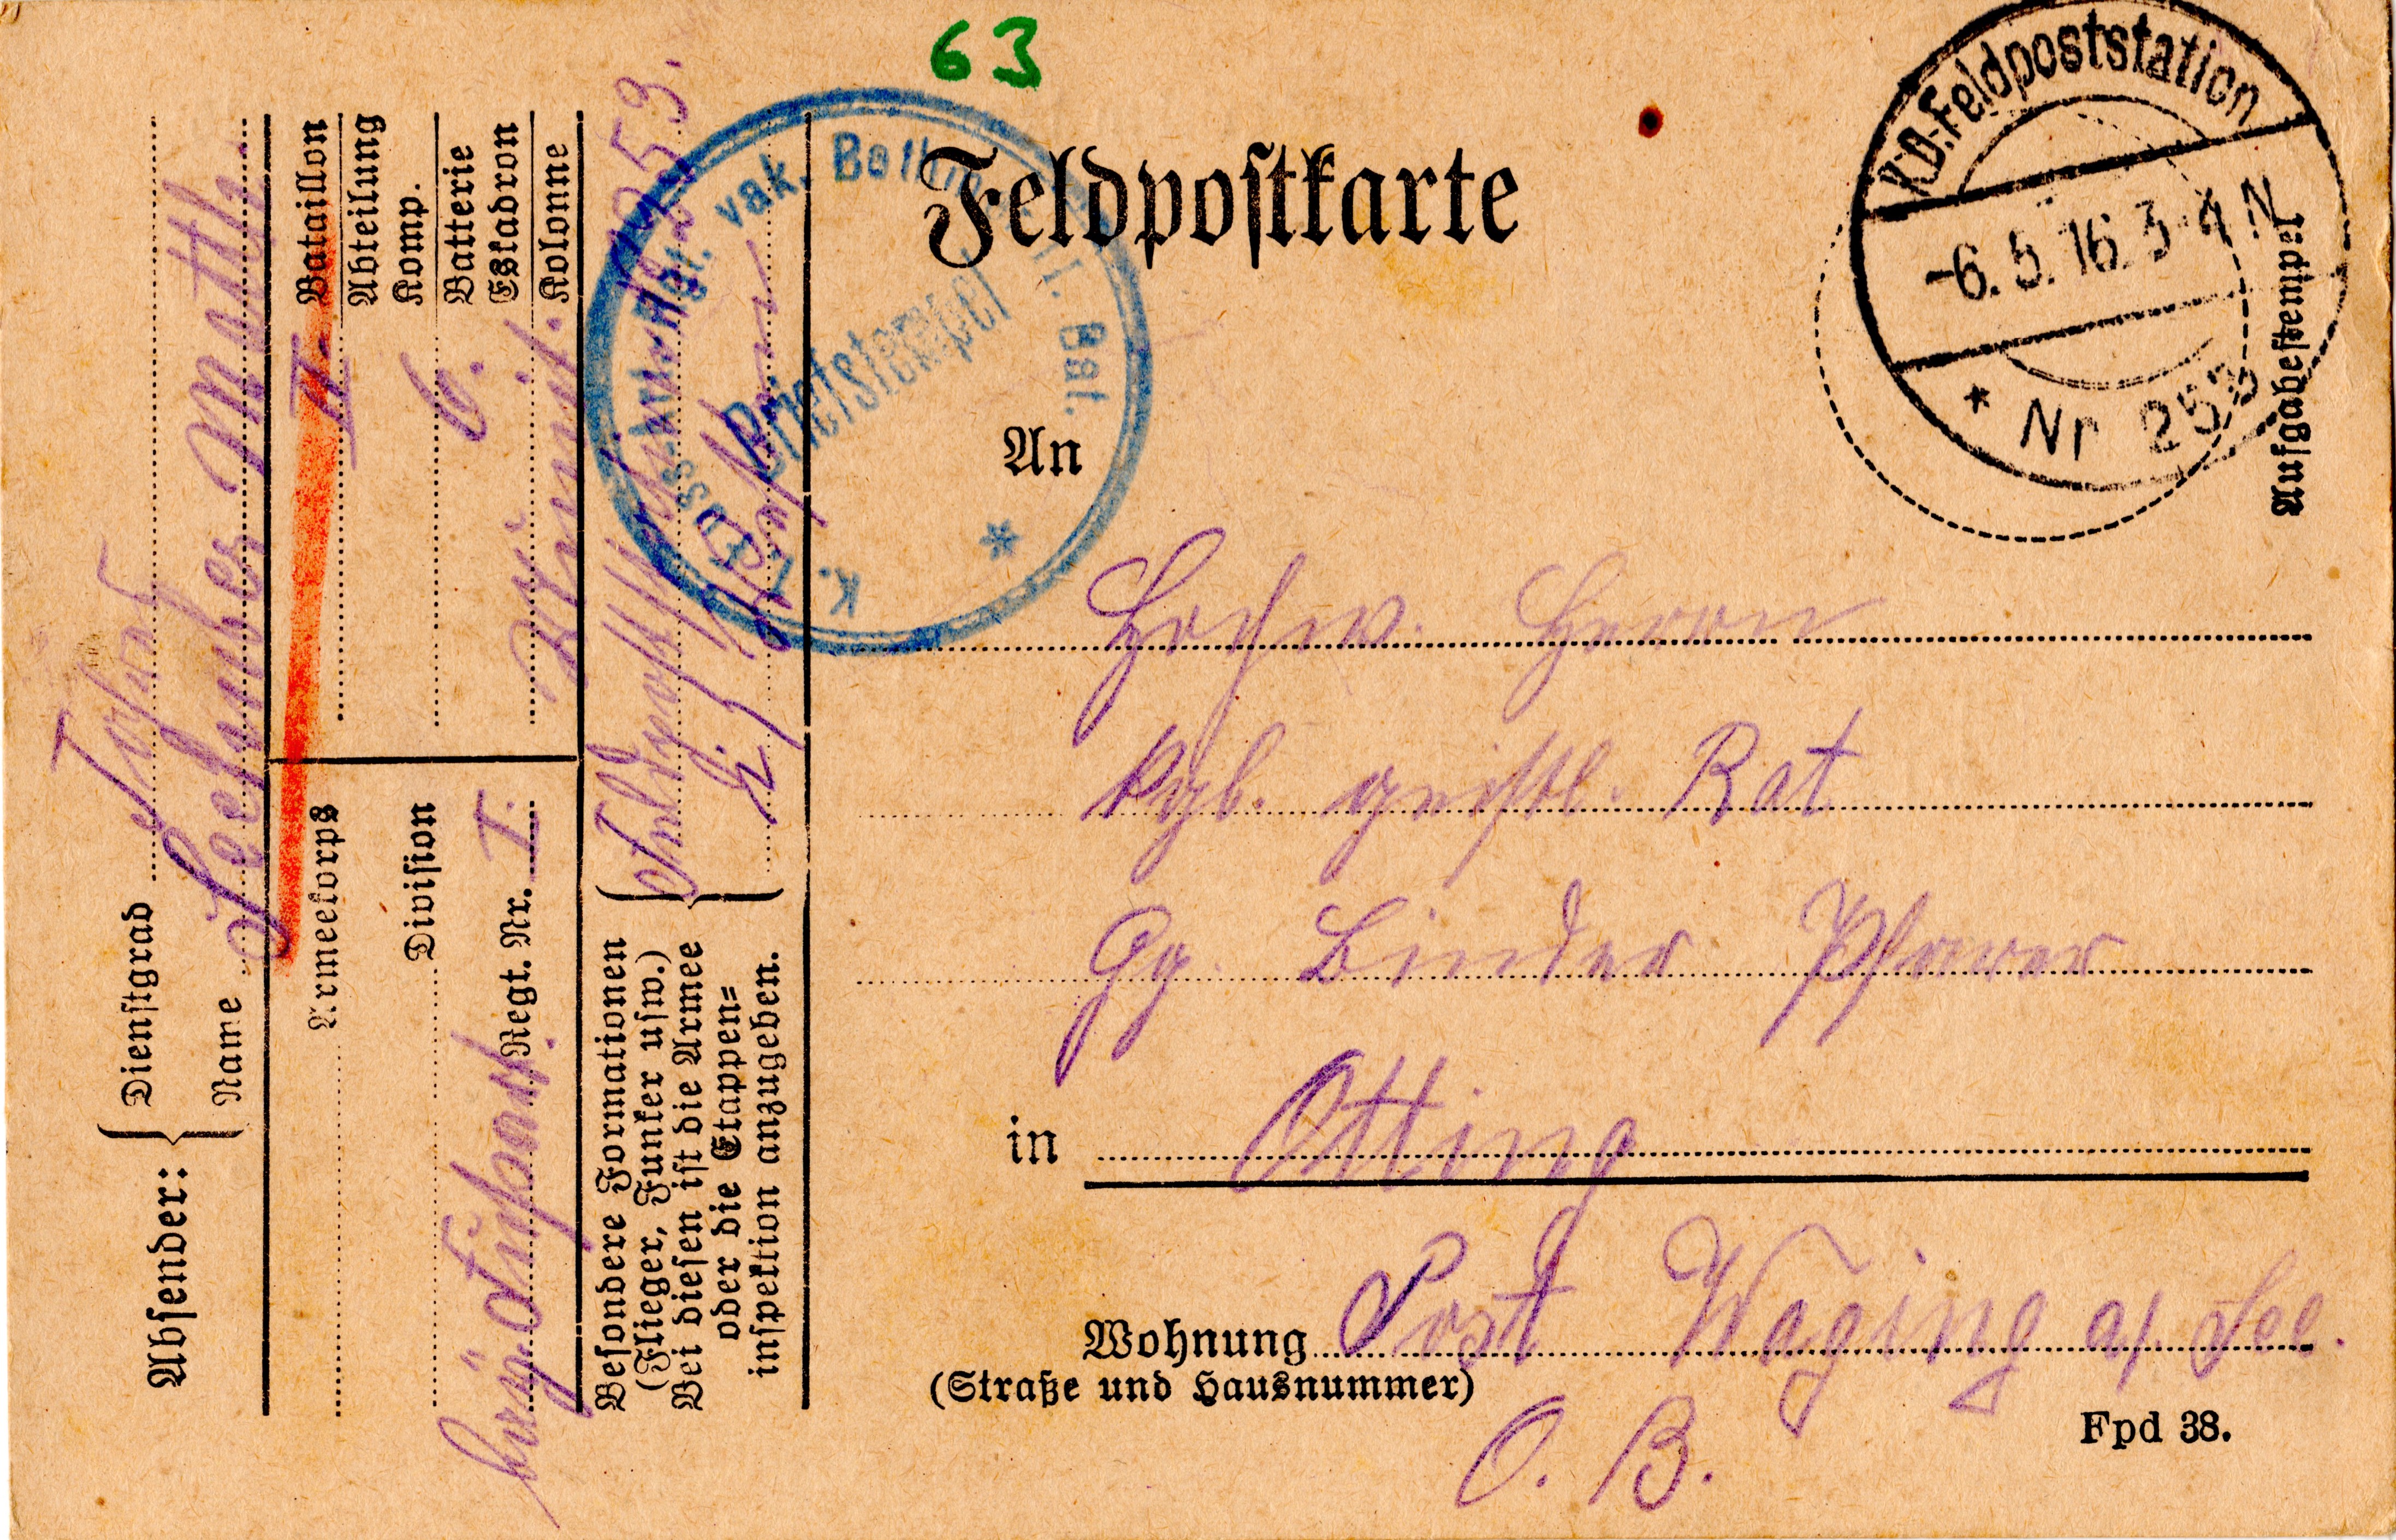 63
Feldpostkarte
K.D. Feldpoststation
-6.5.16. 3-4 N
* Nr 253
Aufgabestempel
Briefstempel
An
Hochw. Herrn
kgl. geistl. Rat
Gg. Binder Pfarrer
in Otting
Wohnung Post Waging a/. See.
(Straße und Hausnummer)
O. B.
Fpd 38.
Absender:
Dienstgrad
Name Matth.
Bataillon II.
Abteilung
Komp. 6.
Batterie
Eskadron
Kolonne
Armeekorps
Division
Regt. Nr. I.
Besondere Formationen
(Flieger, Funker usw.)
Bei diesen ist die Armee
oder die Etappen=
inspektion anzugeben.
Feldpost 253.